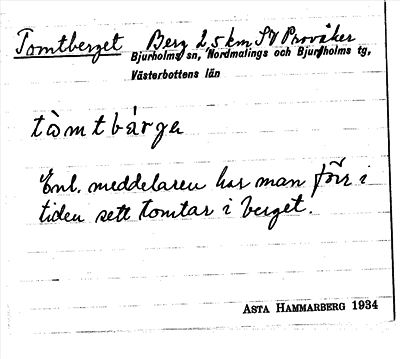 Tomtberget Berg 2,5 km SV Provåker
Bjurholms sn, Nordmalings och Bjurholms tg,
Västerbottens län
tòmtbárga
Enl. meddelaren har man förr i
tiden sett tomtar i berget.
ASTA HAMMARBERG 1934